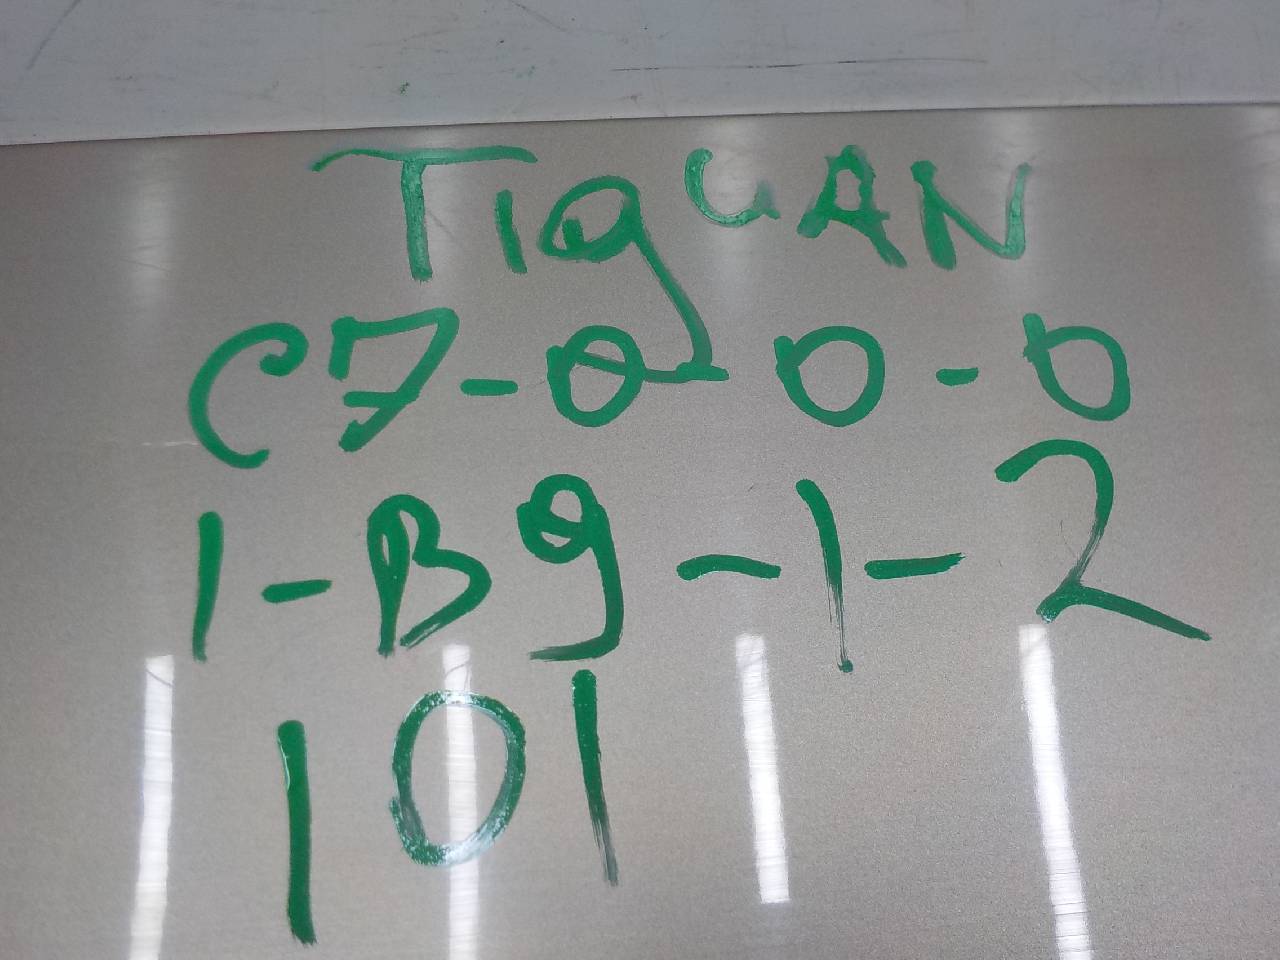 TIgUAN
C7-0 0-0
1-B9-1-2
101